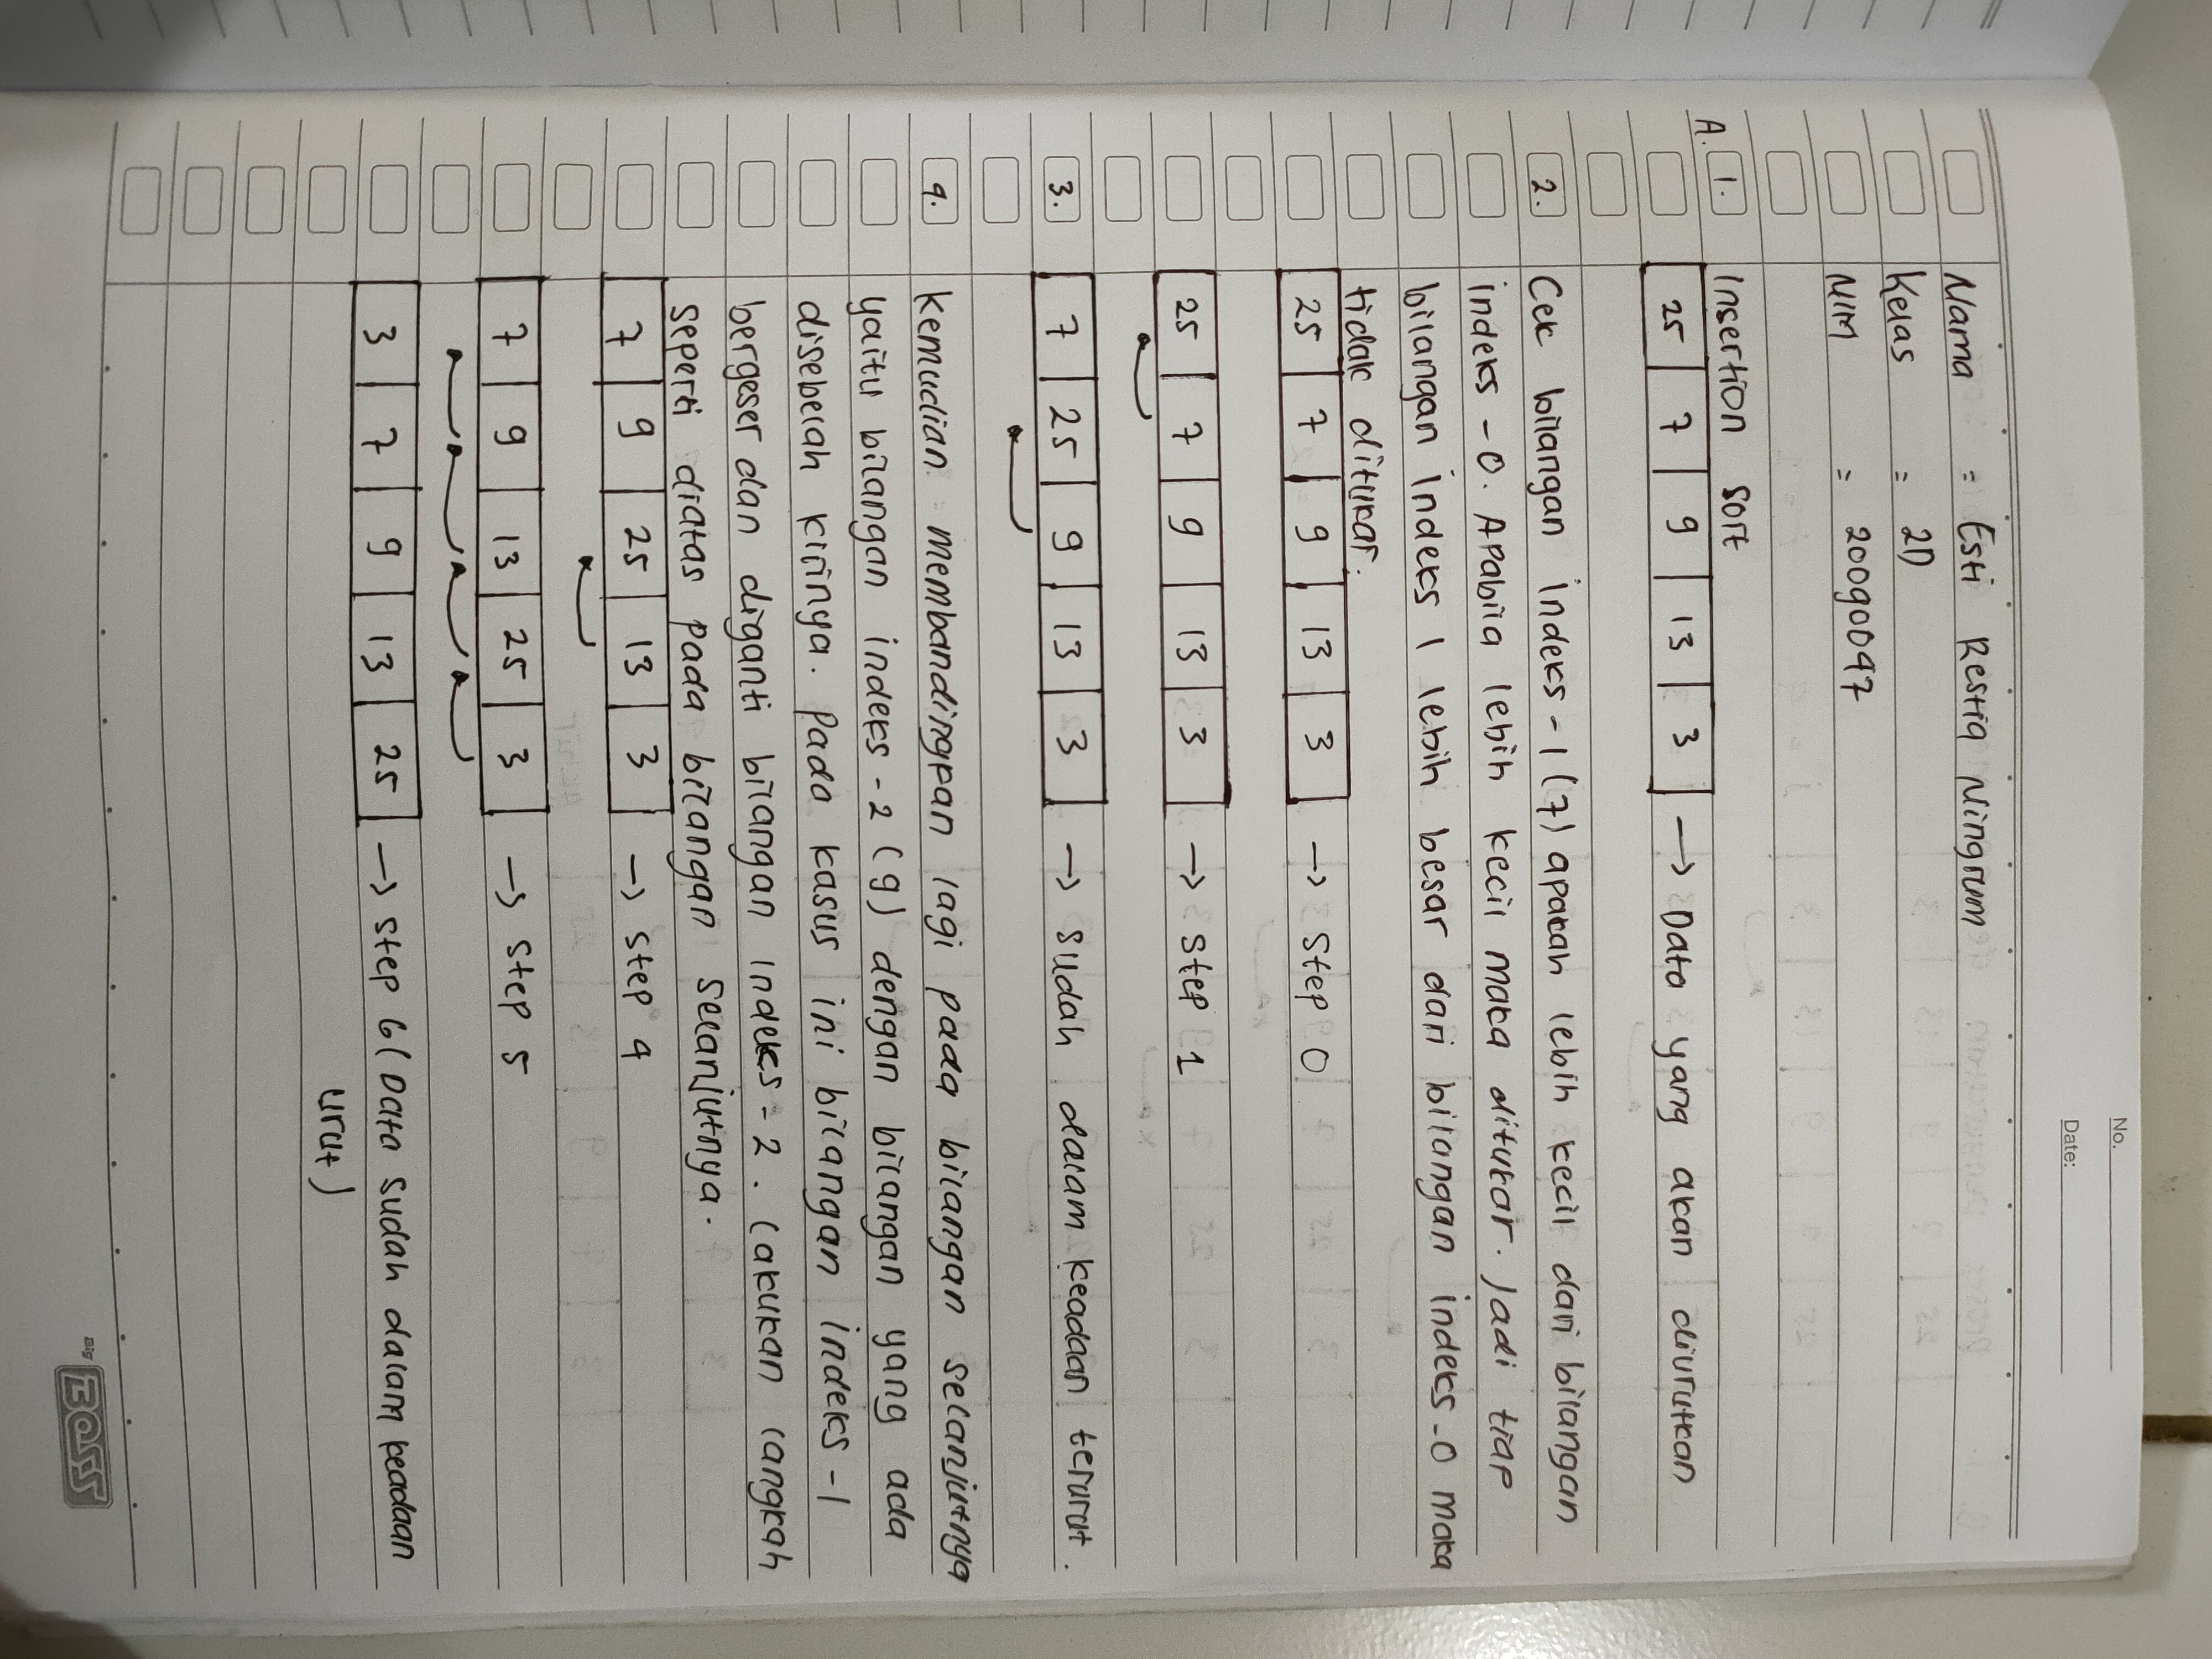 No.
Date:
Nama = Esti Restia Ningrum
Kelas = 2D
NIM = 20090097
A. 1. Insertion Sort
25 7 9 13 3 → Data yang akan diurutkan
2. Cek bilangan indeks -1 (7) apakah lebih kecil dari bilangan
indeks -0. Apabila lebih kecil maka ditukar. Jadi tiap
bilangan indeks 1 lebih besar dari bilangan indeks -0 maka
tidak ditukar.
25 7 9 13 3 → Step 0
25 7 9 13 3 → Step 1
3. 7 25 9 13 3 → sudah dalam keadaan terurut.
4. Kemudian membandingkan lagi pada bilangan selanjutnya
yaitu bilangan indeks -2 (9) dengan bilangan yang ada
disebelah kirinya. Pada kasus ini bilangan indeks -1
bergeser dan diganti bilangan indeks -2. Lakukan langkah
seperti diatas pada bilangan selanjutnya.
7 9 25 13 3 → Step 4
7 9 13 25 3 → Step 5
3 7 9 13 25 → Step 6 (Data sudah dalam keadaan
urut)
BIG
BOSS